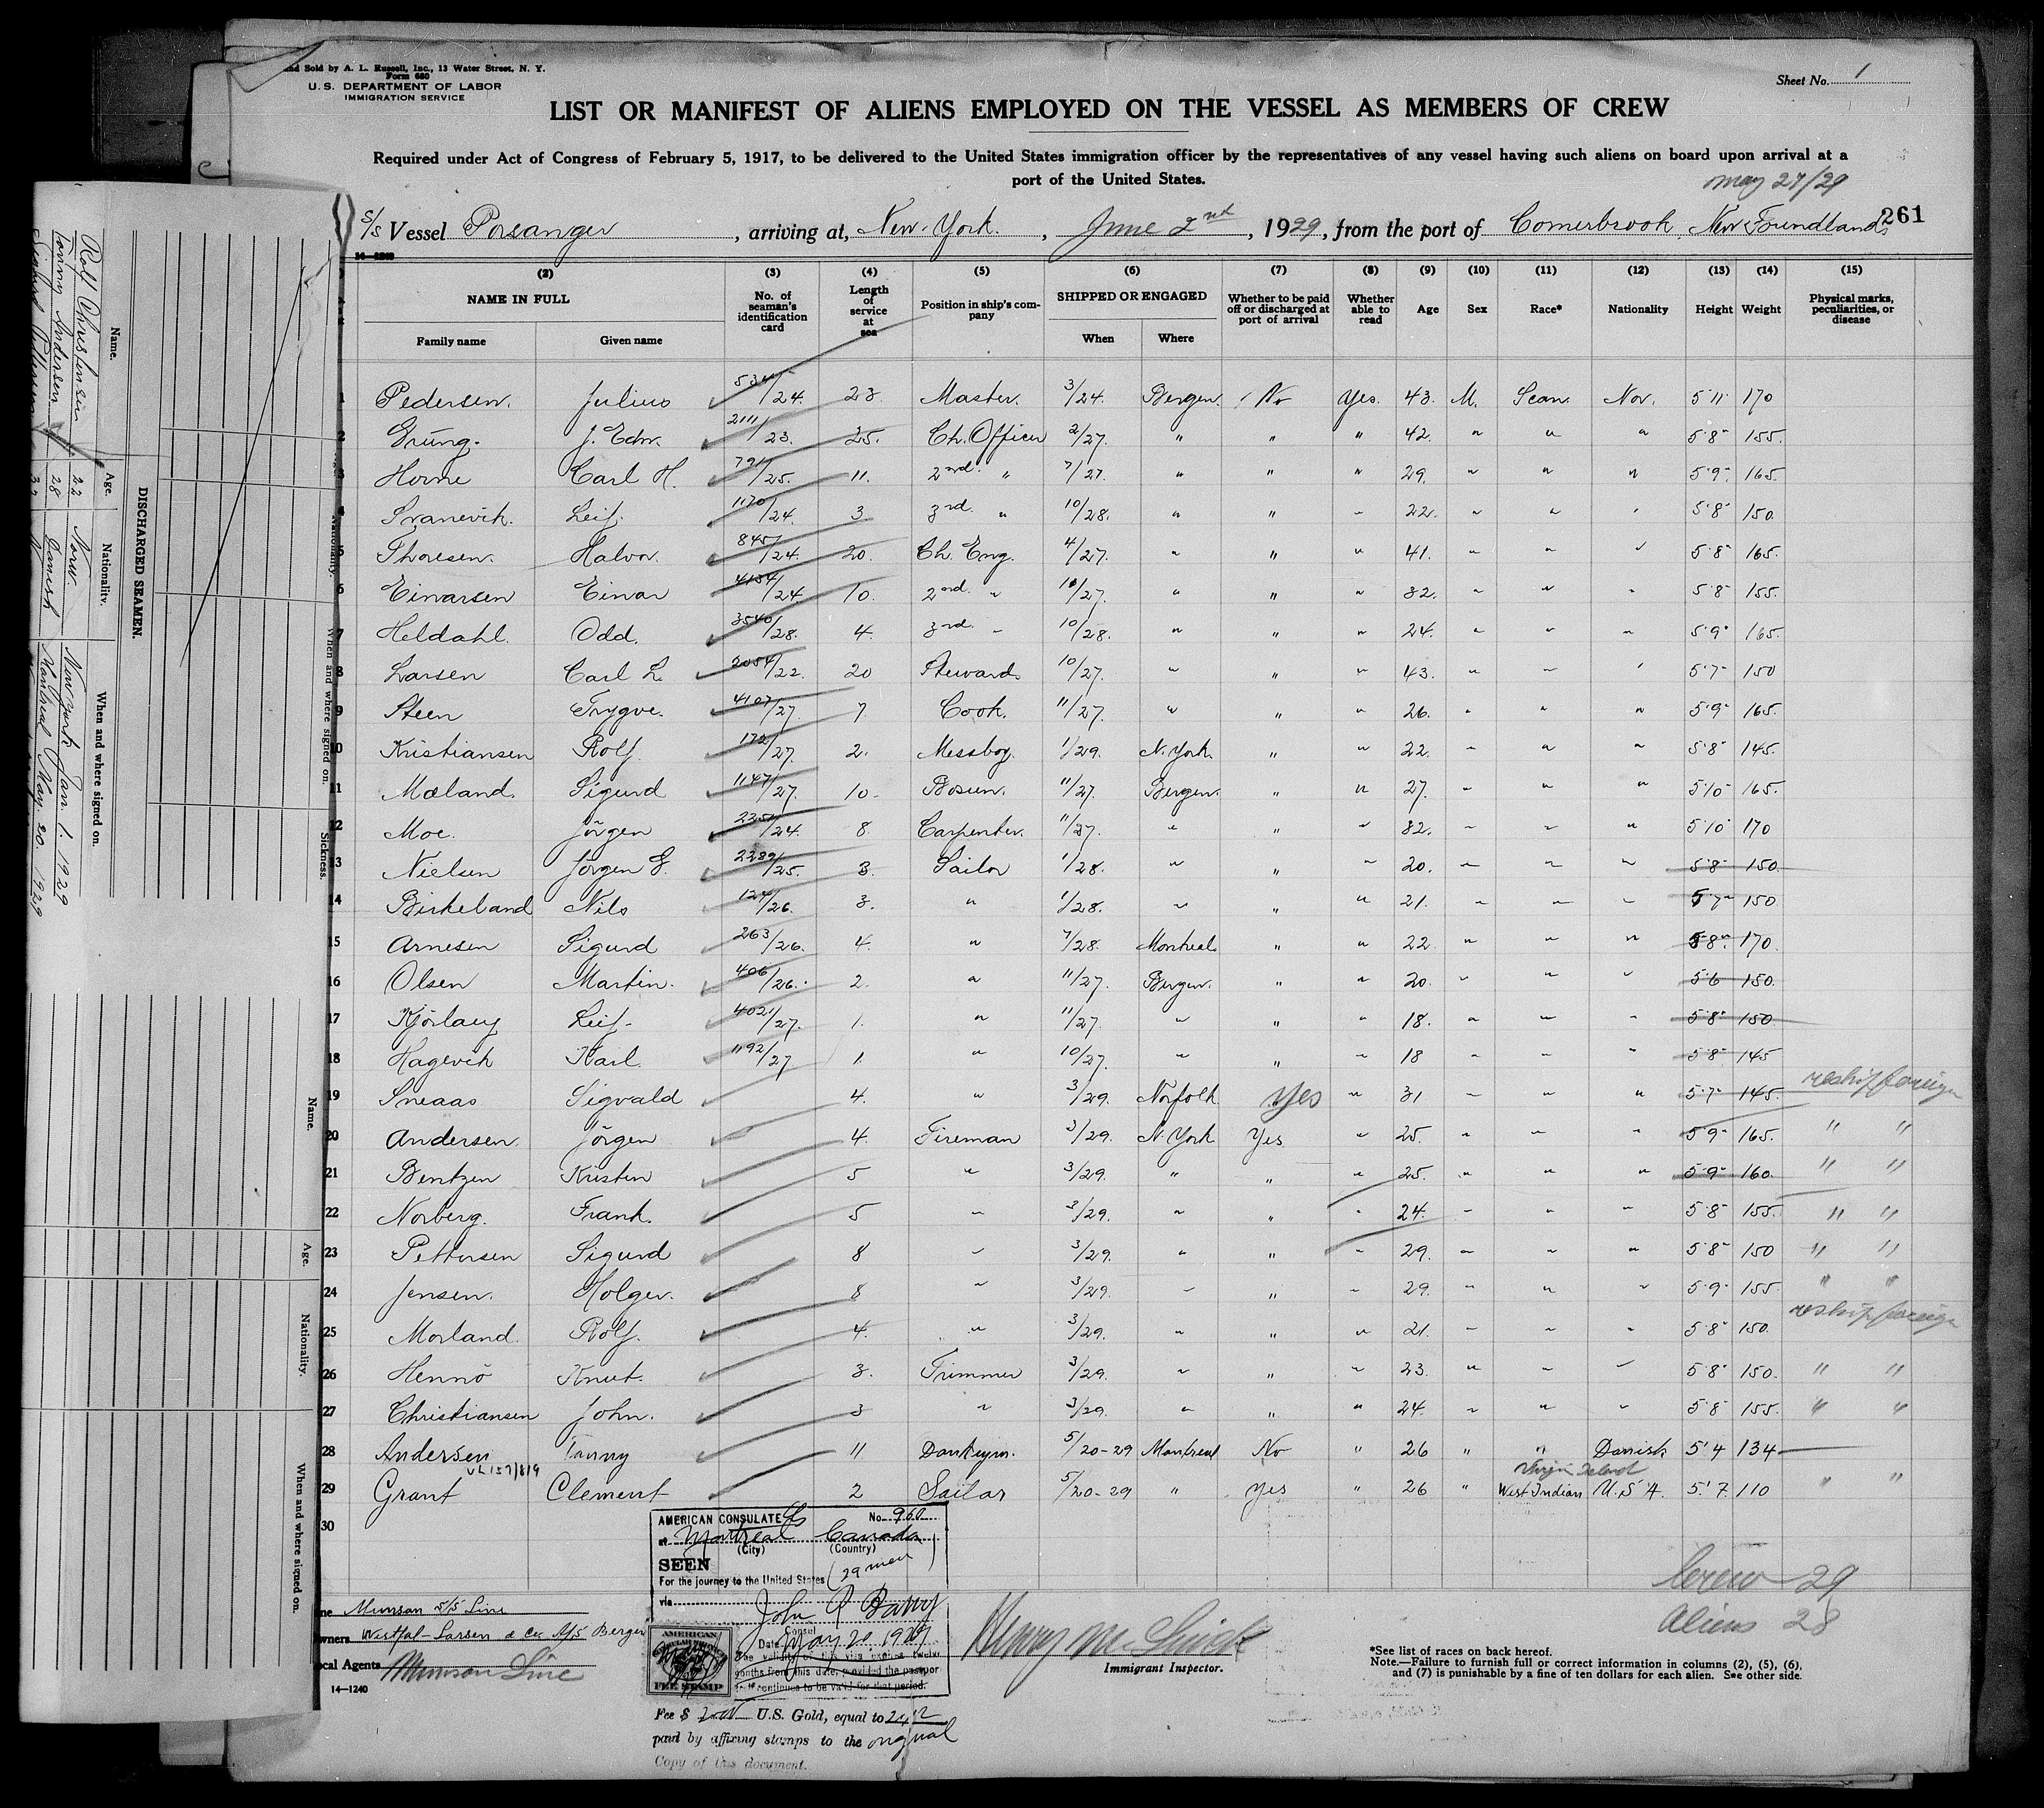 and Sold by A. L. Russell, Inc., 13 Water Street, N. Y.
Form 680
U. S. DEPARTMENT OF LABOR
IMMIGRATION SERVICE
Sheet No. 1
LIST OR MANIFEST OF ALIENS EMPLOYED ON THE VESSEL AS MEMBERS OF CREW
Required under Act of Congress of February 5, 1917, to be delivered to the United States immigration officer by the representatives of any vessel having such aliens on board upon arrival at a
port of the United States.
May 27/29
S/S Vessel Porsanger, arriving at, New-York., June 2nd, 1929, from the port of Cornerbrook, New Foundland. 261
(2) (3) (4) (5) (6) (7) (8) (9) (10) (11) (12) (13) (14) (15)
NAME IN FULL
Family name Given name
No. of seaman's identification card
Length of service at sea
Position in ship's company
SHIPPED OR ENGAGED
When Where
Whether to be paid off or discharged at port of arrival
Whether able to read
Age Sex Race* Nationality Height Weight
Physical marks, peculiarities, or disease
1 Pedersen. Julius /24. 23 Master. 3/24. Bergen. No Yes. 43. M. Scan. Nor. 5'11" 170
2 Grüng. J. Edw. 2111/23. 25. Ch. Officer 2/27. " " " 42. " " " 5'8" 155.
3 Horne Carl H. 791/25. 11. 2nd. " 7/27. " " " 29. " " " 5'9" 165.
4 Svanevik. Leif. 1170/24. 3 3rd. " 10/28. " " " 22. " " " 5'8" 150.
5 Thoresen. Halvor. 845/24. 20. Ch. Eng. 4/27. " " " 41. " " " 5'8" 165.
6 Einarsen Einar 4134/24 10. 2nd. " 10/27. " " " 32. " " " 5'8" 155.
7 Heldahl. Odd. 3540/28. 4. 3rd. " 10/28. " " " 24. " " " 5'9" 165.
8 Larsen Carl L. 2054/22. 20 Steward. 10/27. " " " 43. " " " 5'7" 150
9 Steen Trygve. 4107/27. 7 Cook. 11/27. " " " 26. " " " 5'9" 165.
10 Kristiansen Rolf. 172/27. 2. Messboy. 1/29. N. York. " " 22. " " " 5'8" 145.
11 Mæland. Sigurd 1147/27. 10. Bosun. 11/27. Bergen. " " 27. " " " 5'10" 165.
12 Moe. Jörgen /24. 8. Carpenter. 11/27. " " " 32. " " " 5'10" 170
13 Nielsen Jörgen G. 2239/25. 3. Sailor 1/28. " " " 20. " " " 5'8" 150.
14 Birkeland Nils 124/26. 3. " 1/28. " " " 21. " " " 5'7" 150.
15 Arnesen Sigurd 263/26. 4. " 7/28. Montreal. " " 22 " " " 5'8" 170.
16 Olsen Martin. 406/26. 2. " 11/27. Bergen. " " 20. " " " 5'6 150.
17 Leif. 4021/27. 1. " 11/27. " " " 18. " " " 5'8" 150
18 Hagevik Karl. 1192/27 1. " 10/27. " " " 18 " " " 5'8" 145
19 Sneaas Sigvald 4. " 3/29. Norfolk Yes " 31 " " " 5'7" 145. reship foreign
20 Andersen. Jörgen 4. Fireman 3/29. N. York Yes " 25. " " " 5'9" 165. " "
21 Bentzen Kristen 5 " 3/29. " " " 25. " " " 5'9" 160. " "
22 Norberg. Frank. 5 " 3/29. " " " 24. " " " 5'8" 155. " "
23 Pettersen Sigurd 8 " 3/29. " " " 29. " " " 5'8" 150 " "
24 Jensen. Holger. 8 " 3/29. " " " 29. " " " 5'9" 155. " "
25 Morland. Rolf. 4. " 3/29. " " " 21. " " " 5'8" 150. reship foreign
26 Hennö Knut. 3. Trimmer 3/29. " " " 23. " " " 5'8" 150. " "
27 Christiansen John. 3 " 3/29. " " " 24. " " " 5'8" 155. " "
28 Andersen Tonny 11 Donkeym. 5/20-29 Montreal No " 26 " " Danish 5'4 134
29 Grant Clement 2 Sailor 5/20-29 " Yes " 26 " West Indian U.S.A. 5'7 110 " "
Virgin Island
30
AMERICAN CONSULATE No. 960
at Montreal Canada
(City) (Country)
SEEN
For the journey to the United States (29 men)
via
John
Consul
Date May 20 1929
The validity of this visa expires twelve
months from this date, provided the passport
continues to be valid for that period.
AMERICAN
FEE STAMP
Fee $ U.S. Gold, equal to
paid by affixing stamps to the original
Copy of this document.
Crew 29
Aliens 28
Line Munson S/S Line
Owners Westfal-Larsen & Co. A/S Bergen
Local Agents Munson Line
14—1240
Immigrant Inspector.
*See list of races on back hereof.
Note.—Failure to furnish full or correct information in columns (2), (5), (6),
and (7) is punishable by a fine of ten dollars for each alien. See other side.
DISCHARGED SEAMEN.
Name. Age. Nationality. When and where signed on.
Rolf Christensen 22 Norw. New York Jan. 1. 1929
Tonny Andersen 28 Danish Montreal May. 20. 1929
Sigurd Pettersen
Nationality. When and where signed on. Sickness.
Name. Age. Nationality. When and where signed on.